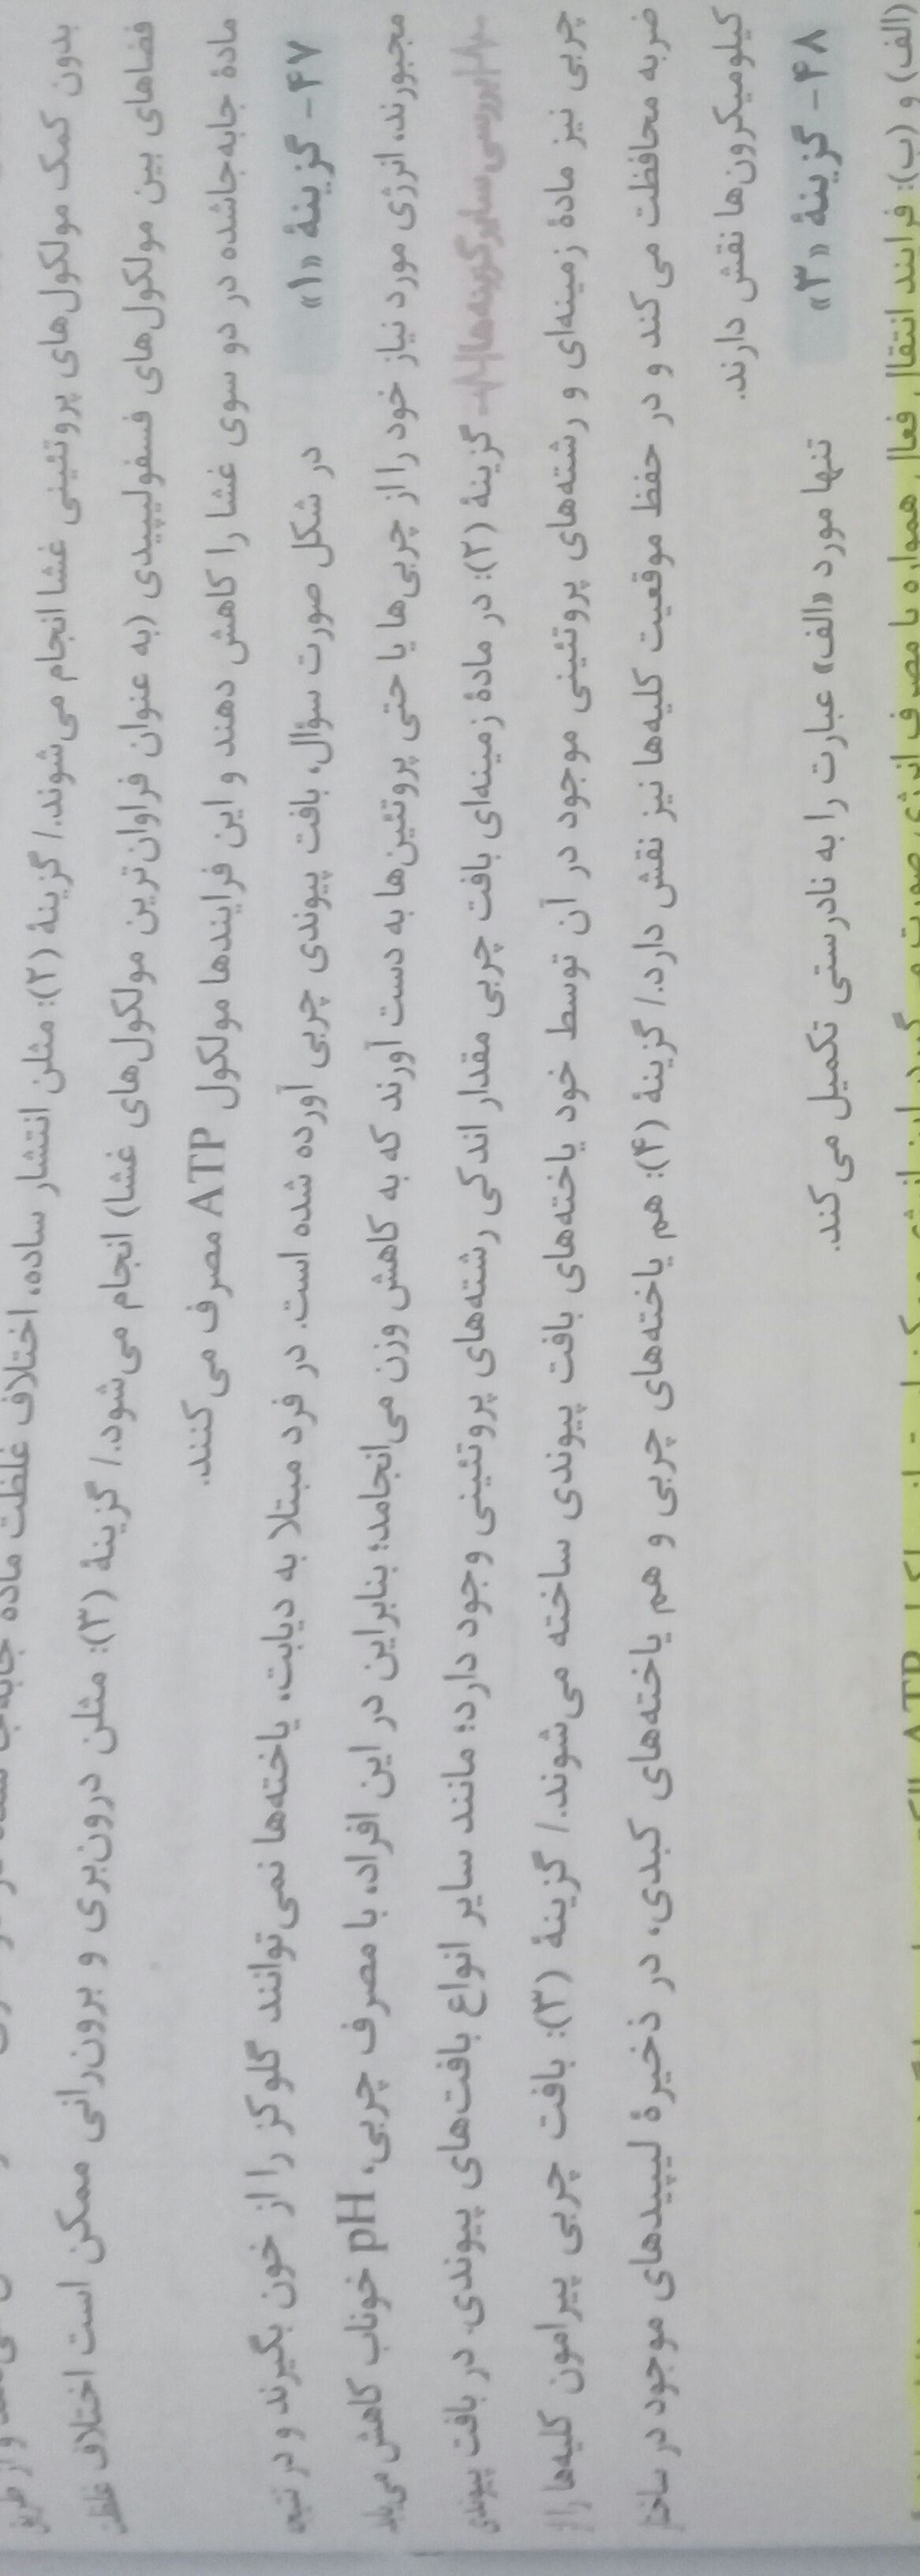 بدون کمک مولکول‌های پروتئینی غشا انجام می‌شوند./ گزینهٔ (۲): مثلن انتشار ساده، اختلاف غلظت ماده
فضاهای بین مولکول‌های فسفولیپیدی (به عنوان فراوان‌ترین مولکول‌های غشا) انجام می‌شود./ گزینهٔ (۳): مثلن درون‌بری و برون‌رانی ممکن است اختلاف غلظت
مادهٔ جابه‌جاشده در دو سوی غشا را کاهش دهند و این فرایندها مولکول ATP مصرف می‌کنند.
۴۷- گزینهٔ «۱» در شکل صورت سؤال، بافت پیوندی چربی آورده شده است. در فرد مبتلا به دیابت، یاخته‌ها نمی‌توانند گلوکز را از خون بگیرند و در نتیجه
مجبورند، انرژی مورد نیاز خود را از چربی‌ها یا حتی پروتئین‌ها به دست آورند که به کاهش وزن می‌انجامد؛ بنابراین در این افراد، با مصرف چربی، pH خوناب کاهش می‌یابد
بررسی سایر گزینه‌ها: گزینهٔ (۲): در مادهٔ زمینه‌ای بافت چربی مقدار اندکی رشته‌های پروتئینی وجود دارد؛ مانند سایر انواع بافت‌های پیوندی. در بافت پیوندی
چربی نیز مادهٔ زمینه‌ای و رشته‌های پروتئینی موجود در آن توسط خود یاخته‌های بافت پیوندی ساخته می‌شوند./ گزینهٔ (۳): بافت چربی پیرامون کلیه‌ها را از
ضربه محافظت می‌کند و در حفظ موقعیت کلیه‌ها نیز نقش دارد./ گزینهٔ (۴): هم یاخته‌های چربی و هم یاخته‌های کبدی، در ذخیرهٔ لیپیدهای موجود در ساختار
کیلومیکرون‌ها نقش دارند.
۴۸- گزینهٔ «۳» تنها مورد «الف» عبارت را به نادرستی تکمیل می‌کند.
(الف) و (ب): فرایند انتقال فعال همواره با مصرف انرژی صورت می‌گیرد. ATP